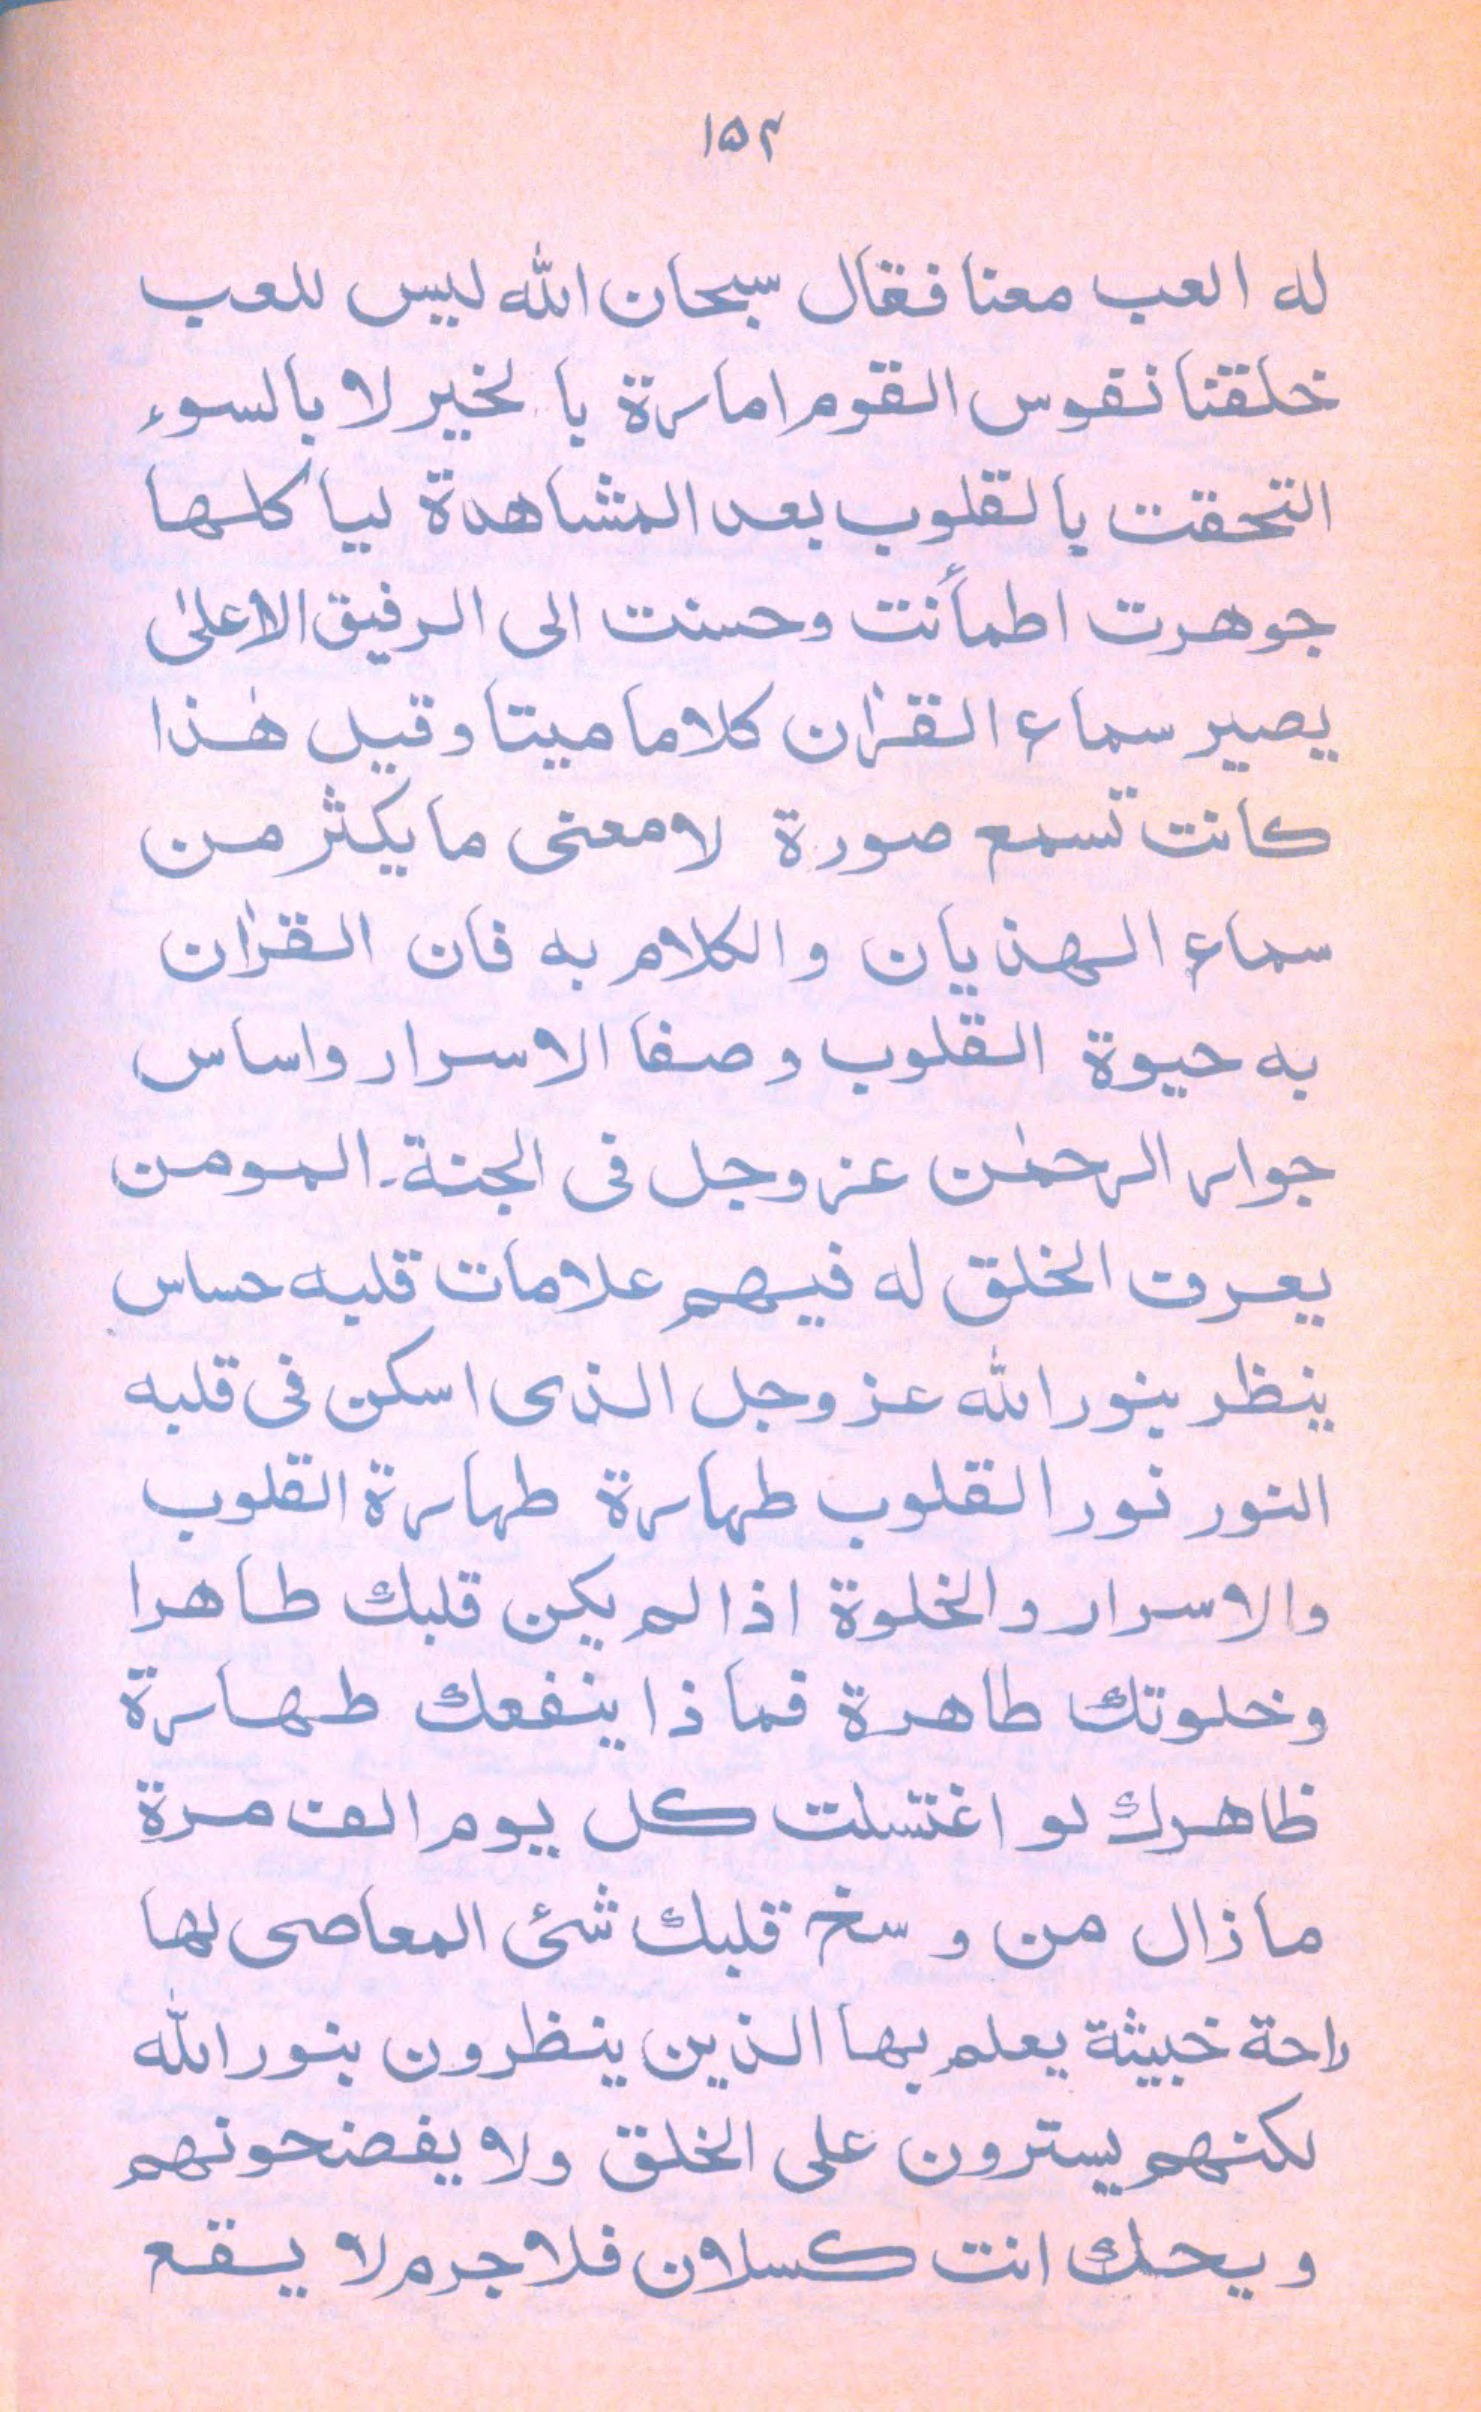 ۱۵۴
له العب معنا فقال سبحان الله ليس للعب
خلقنا نقوس القوم امارة بالخير لا بالسوء
التحقت بالقلوب بعد المشاهدة ليا كلها
جوهرت اطمأنت وحسنت الى الرفيق الاعلىٰ
يصير سماع القرٰان كلاما ميتا و قيل هٰذا
كانت تسمع صورة لا معنى ما يكثر من
سماع الهذيان والكلام به فان القرٰان
به حيوة القلوب وصفا الاسرار واساس
جوار الرحمٰن عز وجل فى الجنة۔ المومن
يعرف الخلق له فيهم علامات قلبه حساس
ينظر بنور الله عز وجل الذى اسكن فى قلبه
النور نور القلوب طهارة طهارة القلوب
والاسرار والخلوة اذا لم يكن قلبك طاهرا
وخلوتك طاهرة فما ذا ينفعك طهارة
ظاهرك لو اغتسلت كل يوم الف مرة
ما ذال من و سخ قلبك شئ المعاصى لها
راحة خبيثة يعلم بها الذين ينظرون بنور الله
لكنهم يسترون على الخلق ولا يفضحونهم
ويحك انت كسلان فلا جرم لا يقع